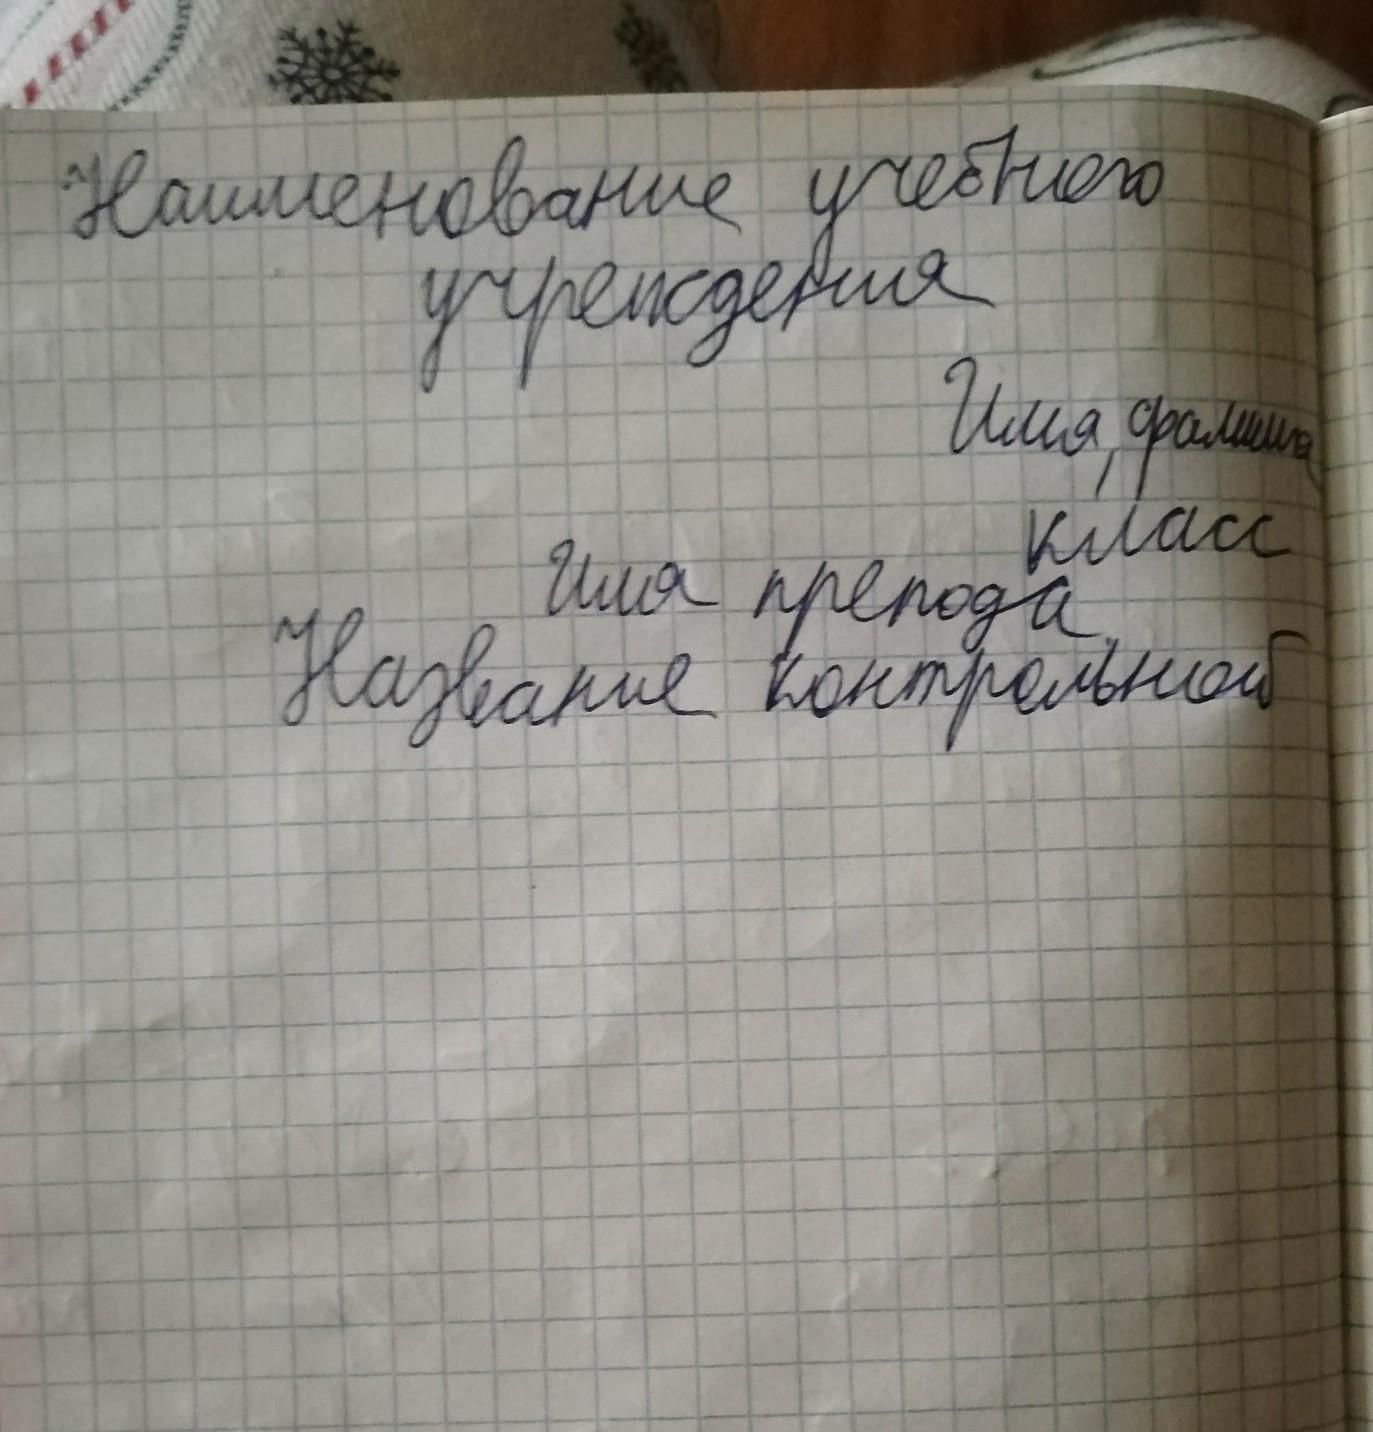 Наименование учебного
учреждения
Имя, фамилия
класс
Имя препода
Название контрольной